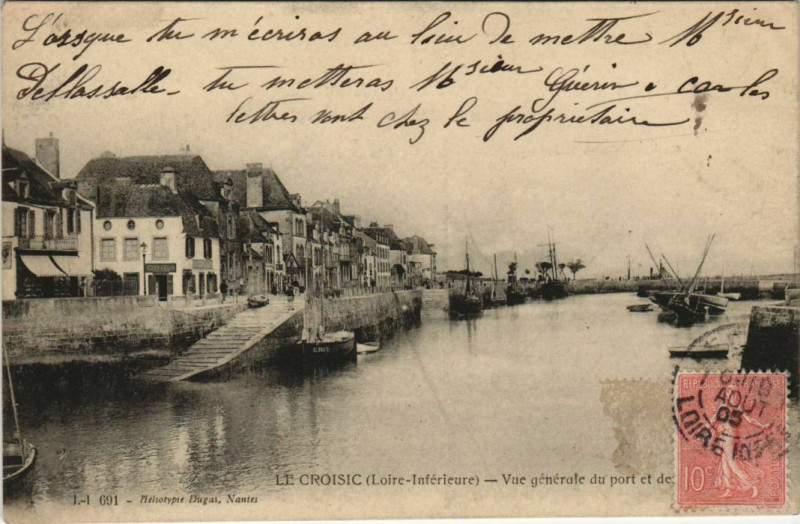 L'orsque tu m'écriras au lieu de mettre Msieur
Dellassalle - tu metteras Msieur Guérin. car les
lettres vont chez le propriétaire
LE CROISIC (Loire-Inférieure) — Vue générale du port et de
L-I 691 - Héliotypie Dugas, Nantes
AOUT
05
LOIRE INF
10c